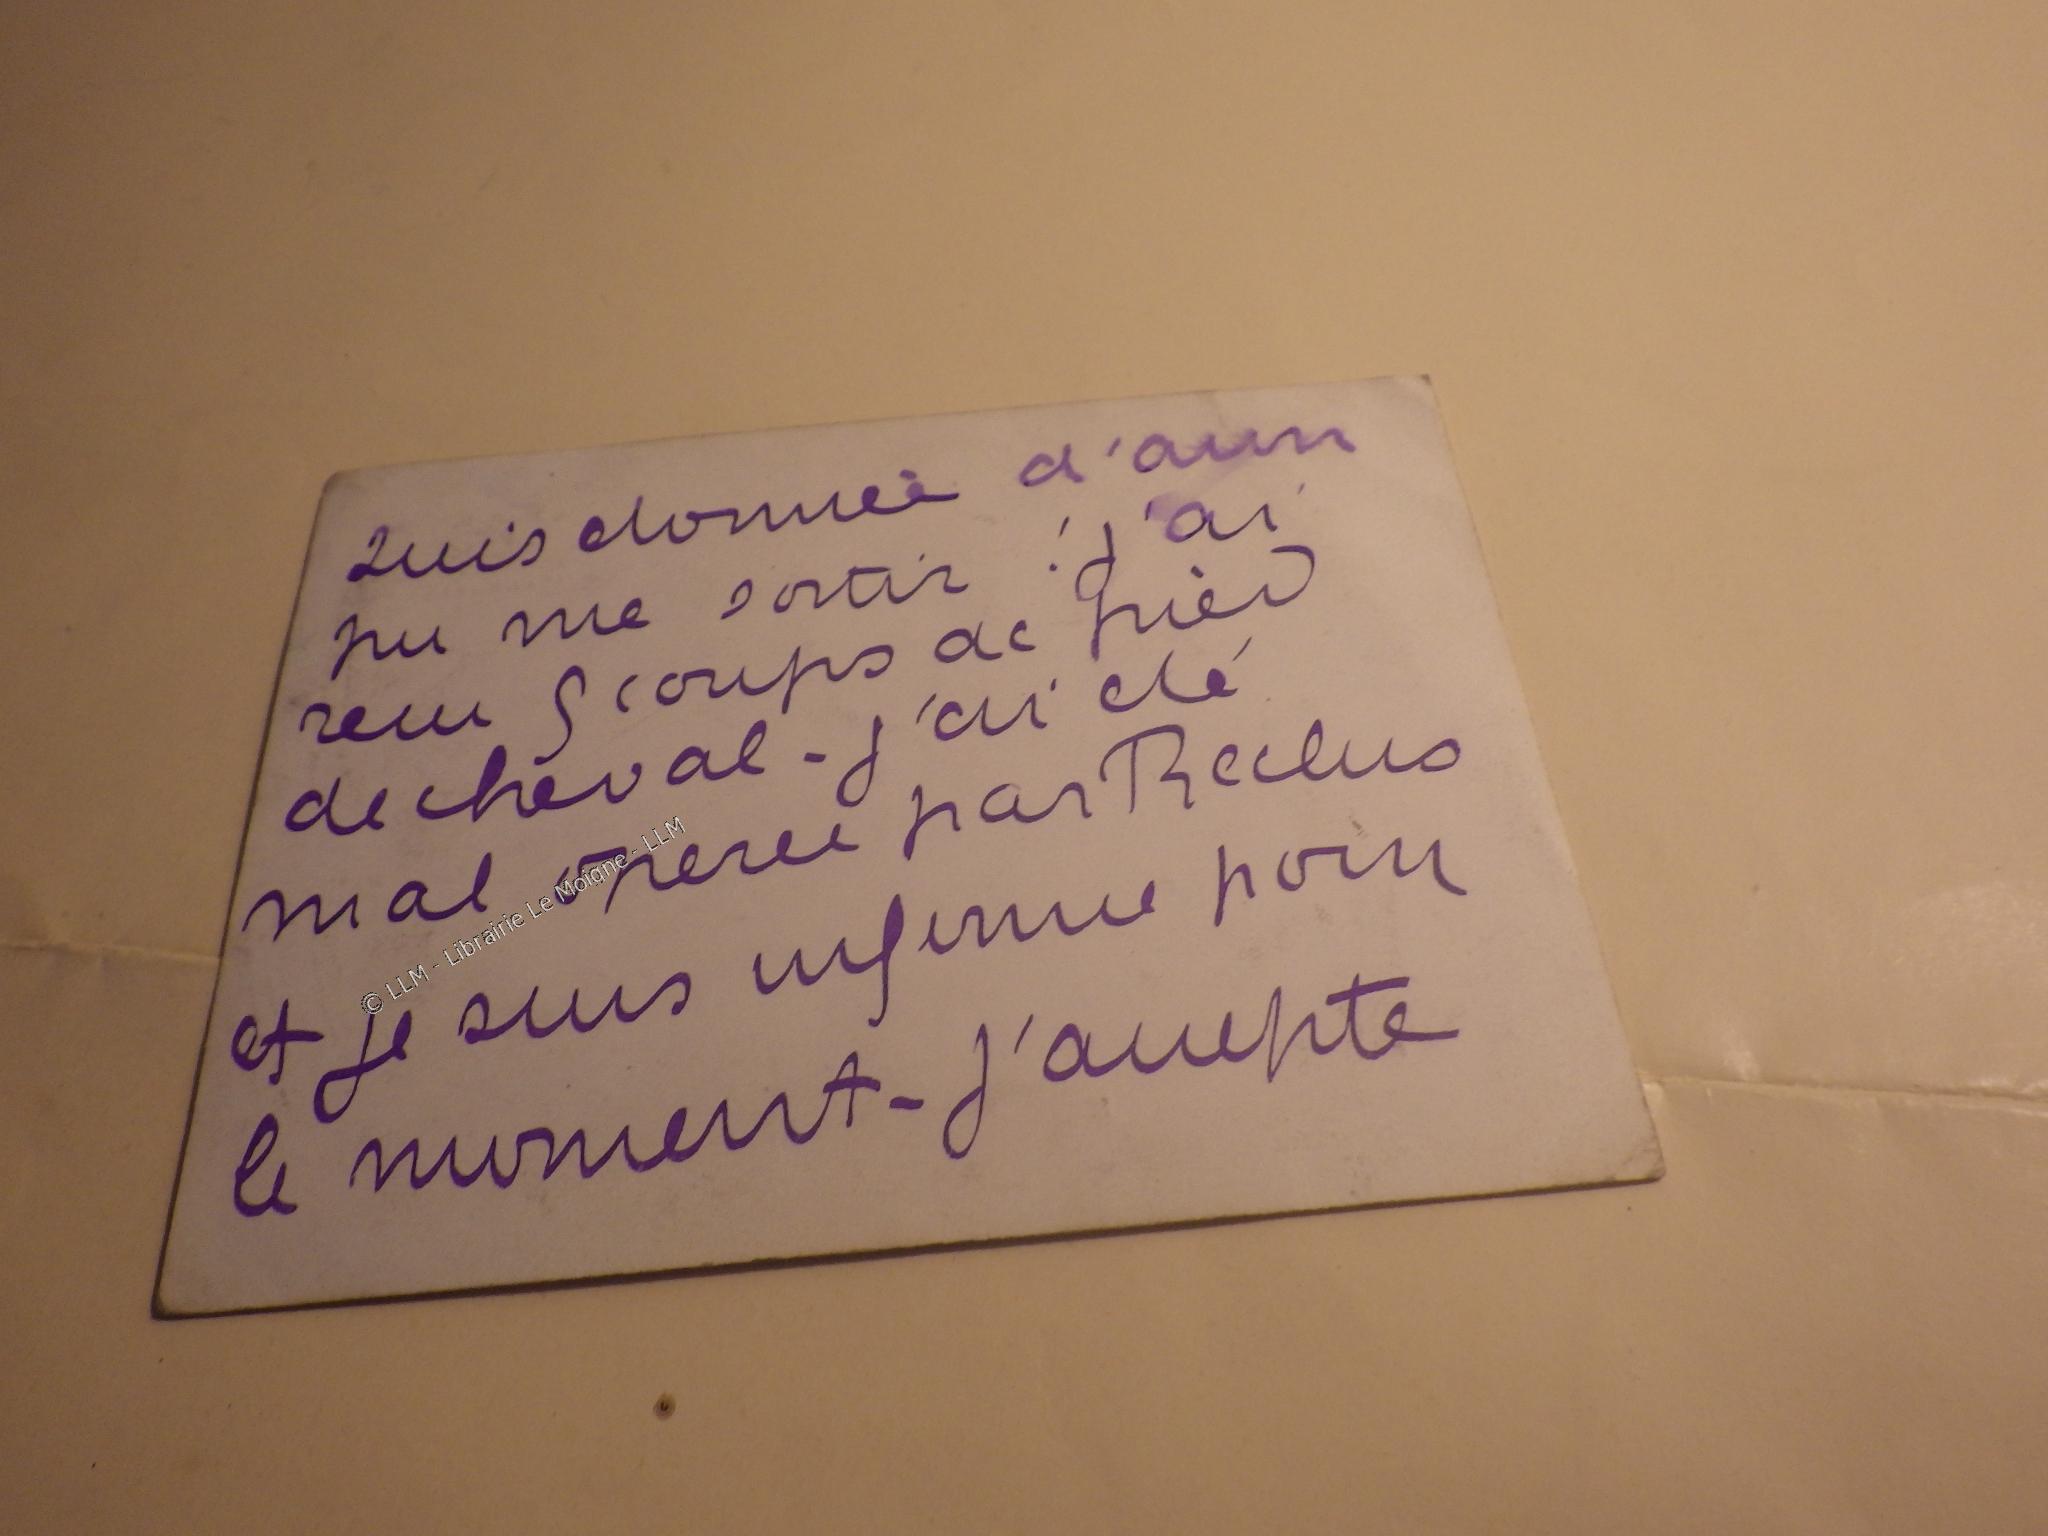 suis étonnée d'avoir
pu me sortir ! j'ai
reçu 5 coups de pied
de cheval - j'ai été
mal opérée par Reclus
et je suis infirme pour
le moment - j'accepte
© LLM - Librairie Le Moigne - LLM